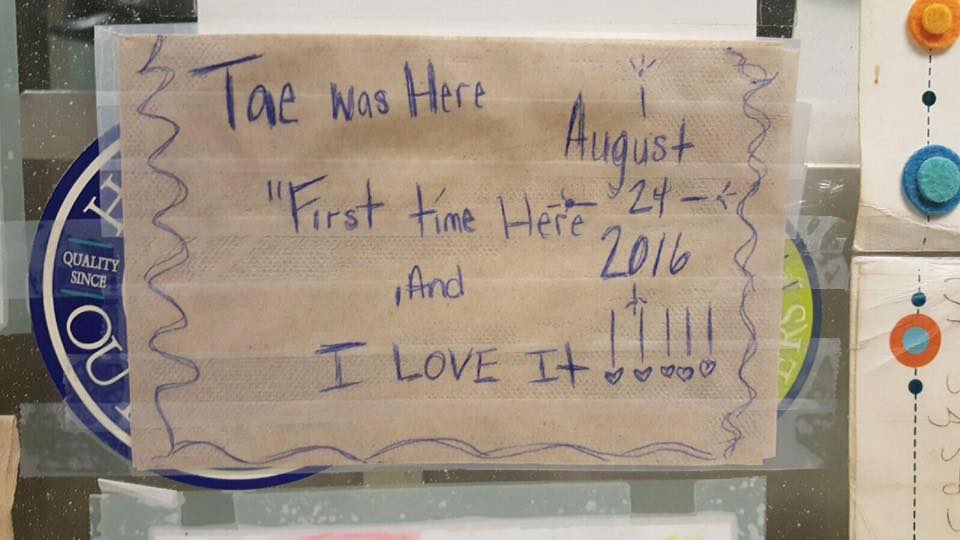 Tae was Here
August
24
2016
"First time Here
,And
I LOVE It !!!!!
QUALITY
SINCE
H
QU
ERS